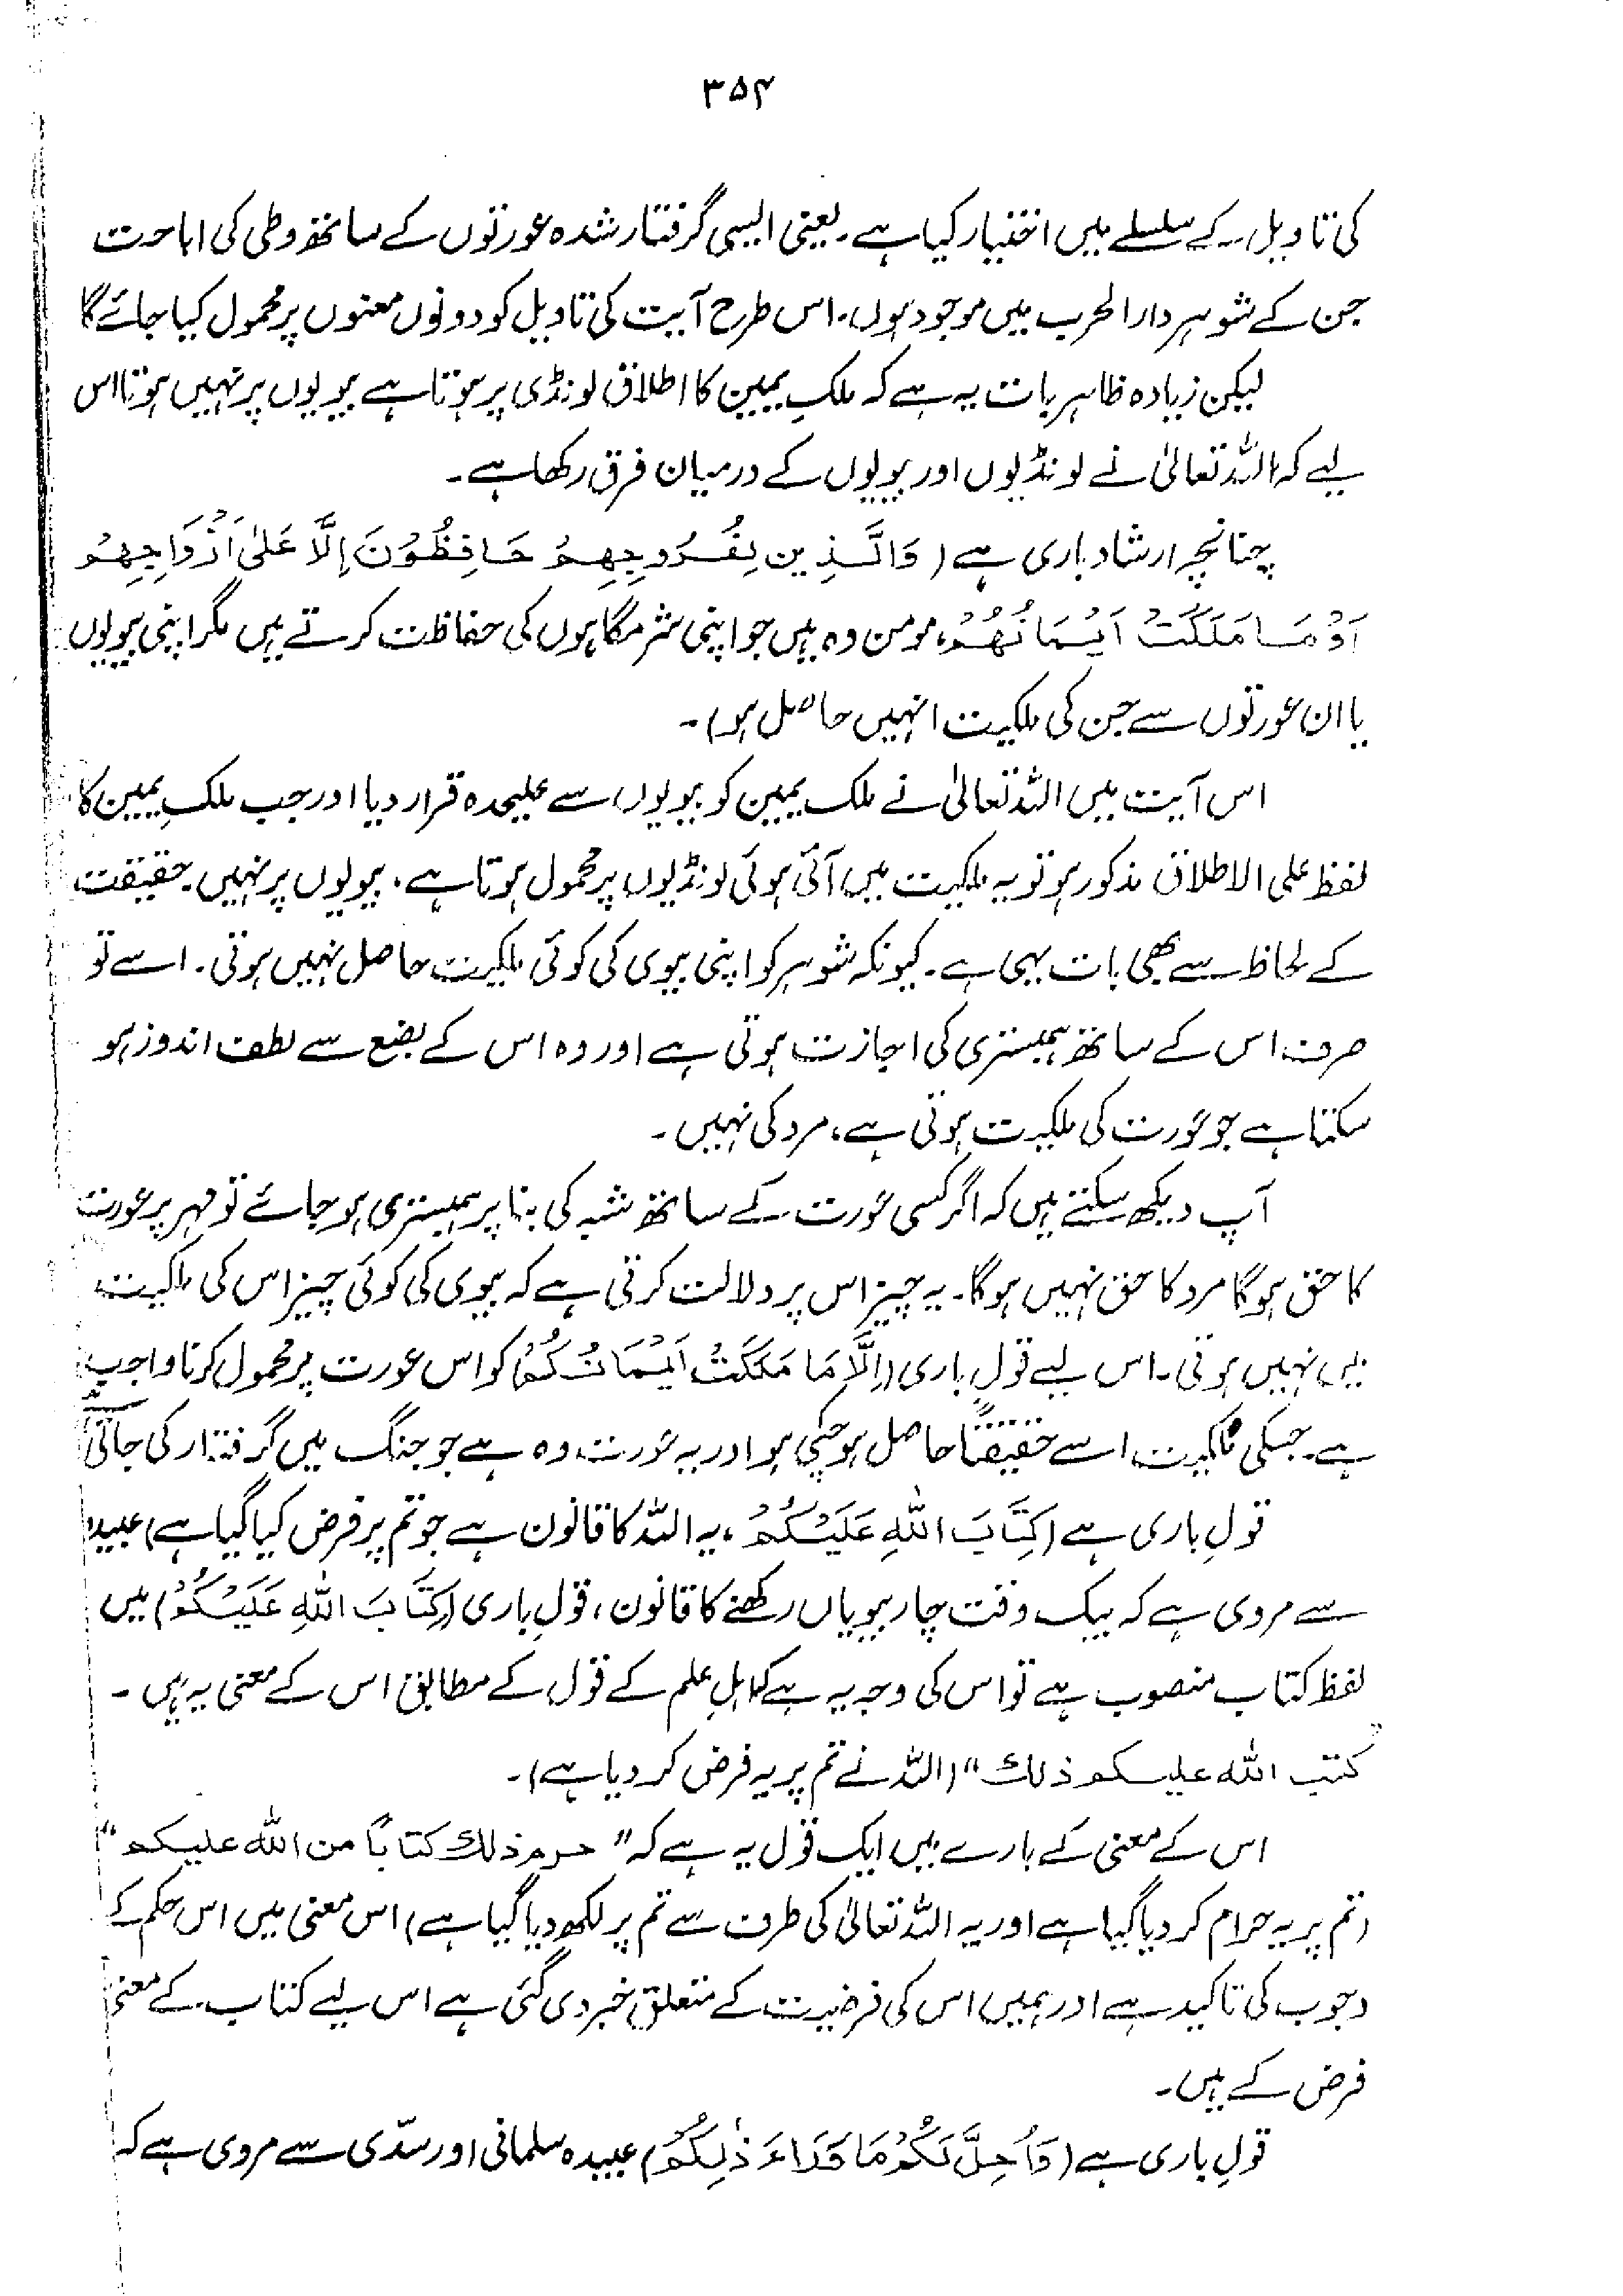 ۳۵۴
کی تاویل کے سلسلے میں اختیار کیا ہے۔ یعنی ایسی گرفتار شدہ عورتوں کے ساتھ وطی کی اباحت
جن کے شوہر دارالحرب میں موجود ہوں۔ اس طرح آیت کی تاویل کو دونوں معنوں پر محمول کیا جائے گا
لیکن زیادہ ظاہر بات یہ ہے کہ ملکِ یمین کا اطلاق لونڈی پر ہوتا ہے بیویوں پر نہیں ہوتا اس
لیے کہ اللہ تعالیٰ نے لونڈیوں اور بیویوں کے درمیان فرق رکھا ہے۔
چنانچہ ارشاد باری ہے (وَالَّذِين لِفُرُوجِهِمْ حَافِظُوْنَ اِلَّا عَلىٰ اَزْوَاجِهِمْ
اَوْ مَا مَلَكَتْ اَيْمَانُهُمْ، مومن وہ ہیں جو اپنی شرمگاہوں کی حفاظت کرتے ہیں مگر اپنی بیویوں
یا ان عورتوں سے جن کی ملکیت انہیں حاصل ہو)۔
اس آیت میں اللہ تعالیٰ نے ملک یمین کو بیویوں سے علیحدہ قرار دیا اور جب ملکِ یمین کا
لفظ علی الاطلاق مذکور ہو تو یہ ملکیت میں آئی ہوئی لونڈیوں پر محمول ہوتا ہے، بیویوں پر نہیں۔ حقیقت
کے لحاظ سے بھی بات یہی ہے۔ کیونکہ شوہر کو اپنی بیوی کی کوئی ملکیت حاصل نہیں ہوتی۔ اسے تو
صرف اس کے ساتھ ہمبستری کی اجازت ہوتی ہے اور وہ اس کے بضع سے لطف اندوز ہو
سکتا ہے جو عورت کی ملکیت ہوتی ہے، مرد کی نہیں۔
آپ دیکھ سکتے ہیں کہ اگر کسی عورت کے ساتھ شبہ کی بنا پر ہمبستری ہو جائے تو مہر پر عورت
کا حق ہوگا مرد کا حق نہیں ہوگا۔ یہ چیز اس پر دلالت کرتی ہے کہ بیوی کی کوئی چیز اس کی ملکیت
میں نہیں ہوتی۔ اس لیے قولِ باری (اِلَّا مَا مَلَكَتْ اَيْمَانُكُمْ) کو اس عورت پر محمول کرنا واجب
ہے۔ جسکی ملکیت اسے حقیقتاً حاصل ہو چکی ہو اور یہ عورت وہ ہے جو جنگ میں گرفتار کی جاتی
قولِ باری ہے (كِتَابَ اللهِ عَلَيْكُمْ، یہ اللہ کا قانون ہے جو تم پر فرض کیا گیا ہے) عبیدہ
سے مروی ہے کہ بیک وقت چار بیویاں رکھنے کا قانون، قولِ باری (كِتَابَ اللهِ عَلَيْكُمْ) میں
لفظ کتاب منصوب ہے تو اس کی وجہ یہ ہے کہ اہلِ علم کے قول کے مطابق اس کے معنی یہ ہیں۔
"كتب الله عليكم ذلك" (اللہ نے تم پر یہ فرض کر دیا ہے)۔
اس کے معنی کے بارے میں ایک قول یہ ہے کہ "حرم ذلك كتابًا من الله عليكم"
(تم پر یہ حرام کر دیا گیا ہے اور یہ اللہ تعالیٰ کی طرف سے تم پر لکھ دیا گیا ہے) اس معنی میں اس حکم کے
وجوب کی تاکید ہے اور ہمیں اس کی فرضیت کے متعلق خبر دی گئی ہے اس لیے کتاب کے معنی
فرض کے ہیں۔
قولِ باری ہے (وَاُحِلَّ لَكُمْ مَا وَرَاءَ ذٰلِكُمْ) عبیدہ سلمانی اور سدّی سے مروی ہے کہ